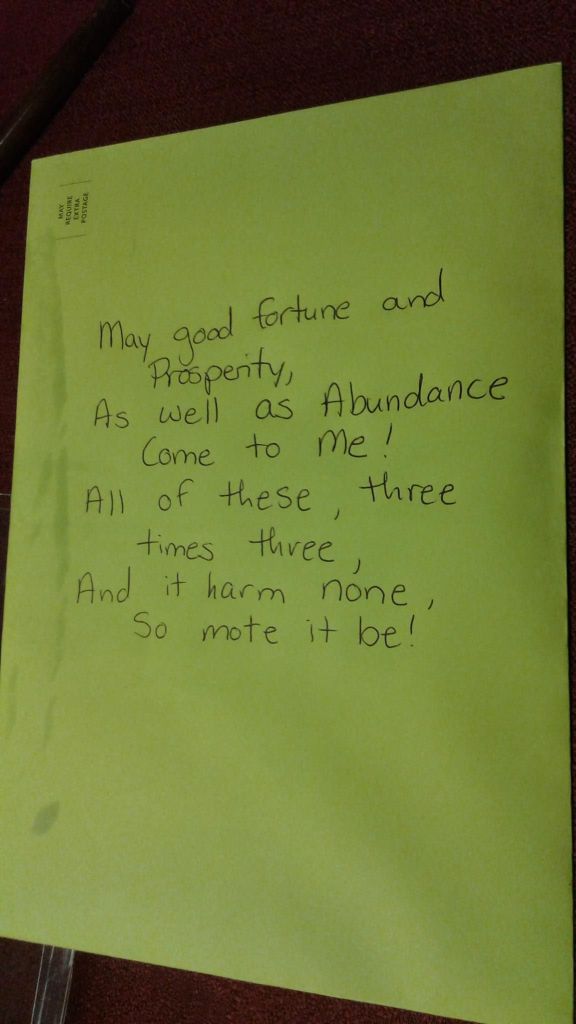 MAY
REQUIRE
EXTRA
POSTAGE
May good fortune and
Prosperity,
As well as Abundance
Come to Me!
All of these, three
times three,
And it harm none,
So mote it be!